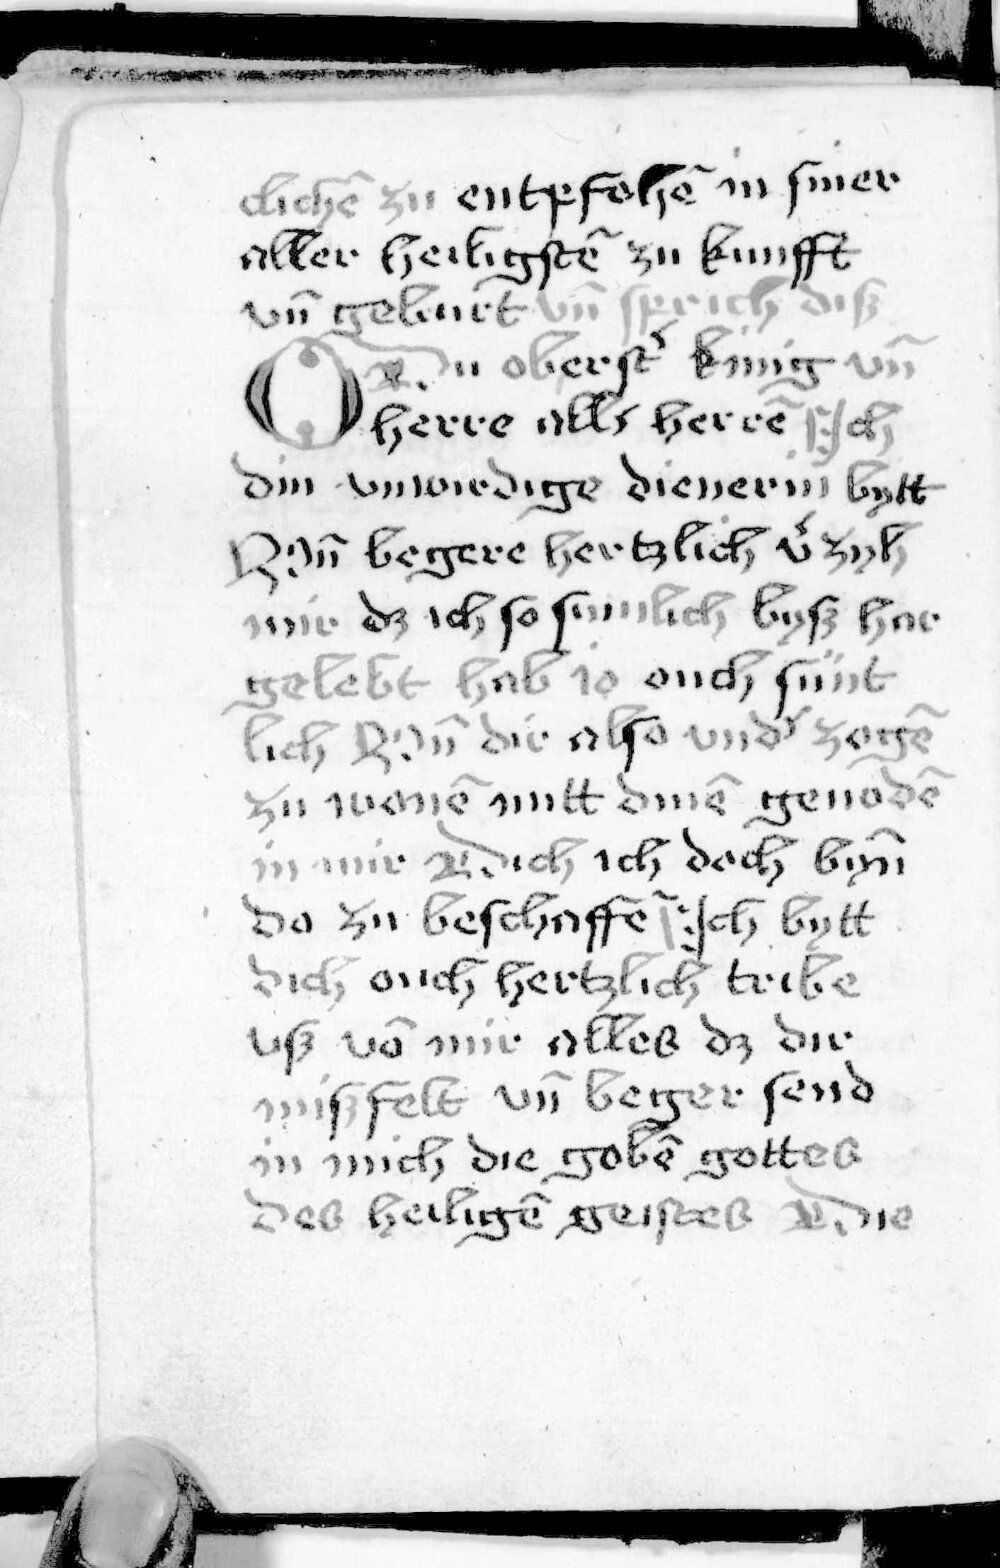 clichē zu entpfohē in siner
aller heiligstē zu kunfft
vn̄ geburt vn̄ sprich diß
O Du oberst͛ küng vn̄
herre all͛ herrē Jch
din vnwirdige dienerin bytt
Vn̄ begere hertzlich v͛zyh
mir dz ich so sumlich byß har
gelebt hab jo ouch sünt
lich Vn̄ dir also und͛ zogē
zu wonē mitt dinē genodē
in mir Dich ich doch byn̄
do zu beschaffē Jch bytt
dich ouch hertzlich tribe
vß vō mir alles dz dir
mißfelt vn̄ beger send
in mich die gobē gottes
des heiligē geistes Die